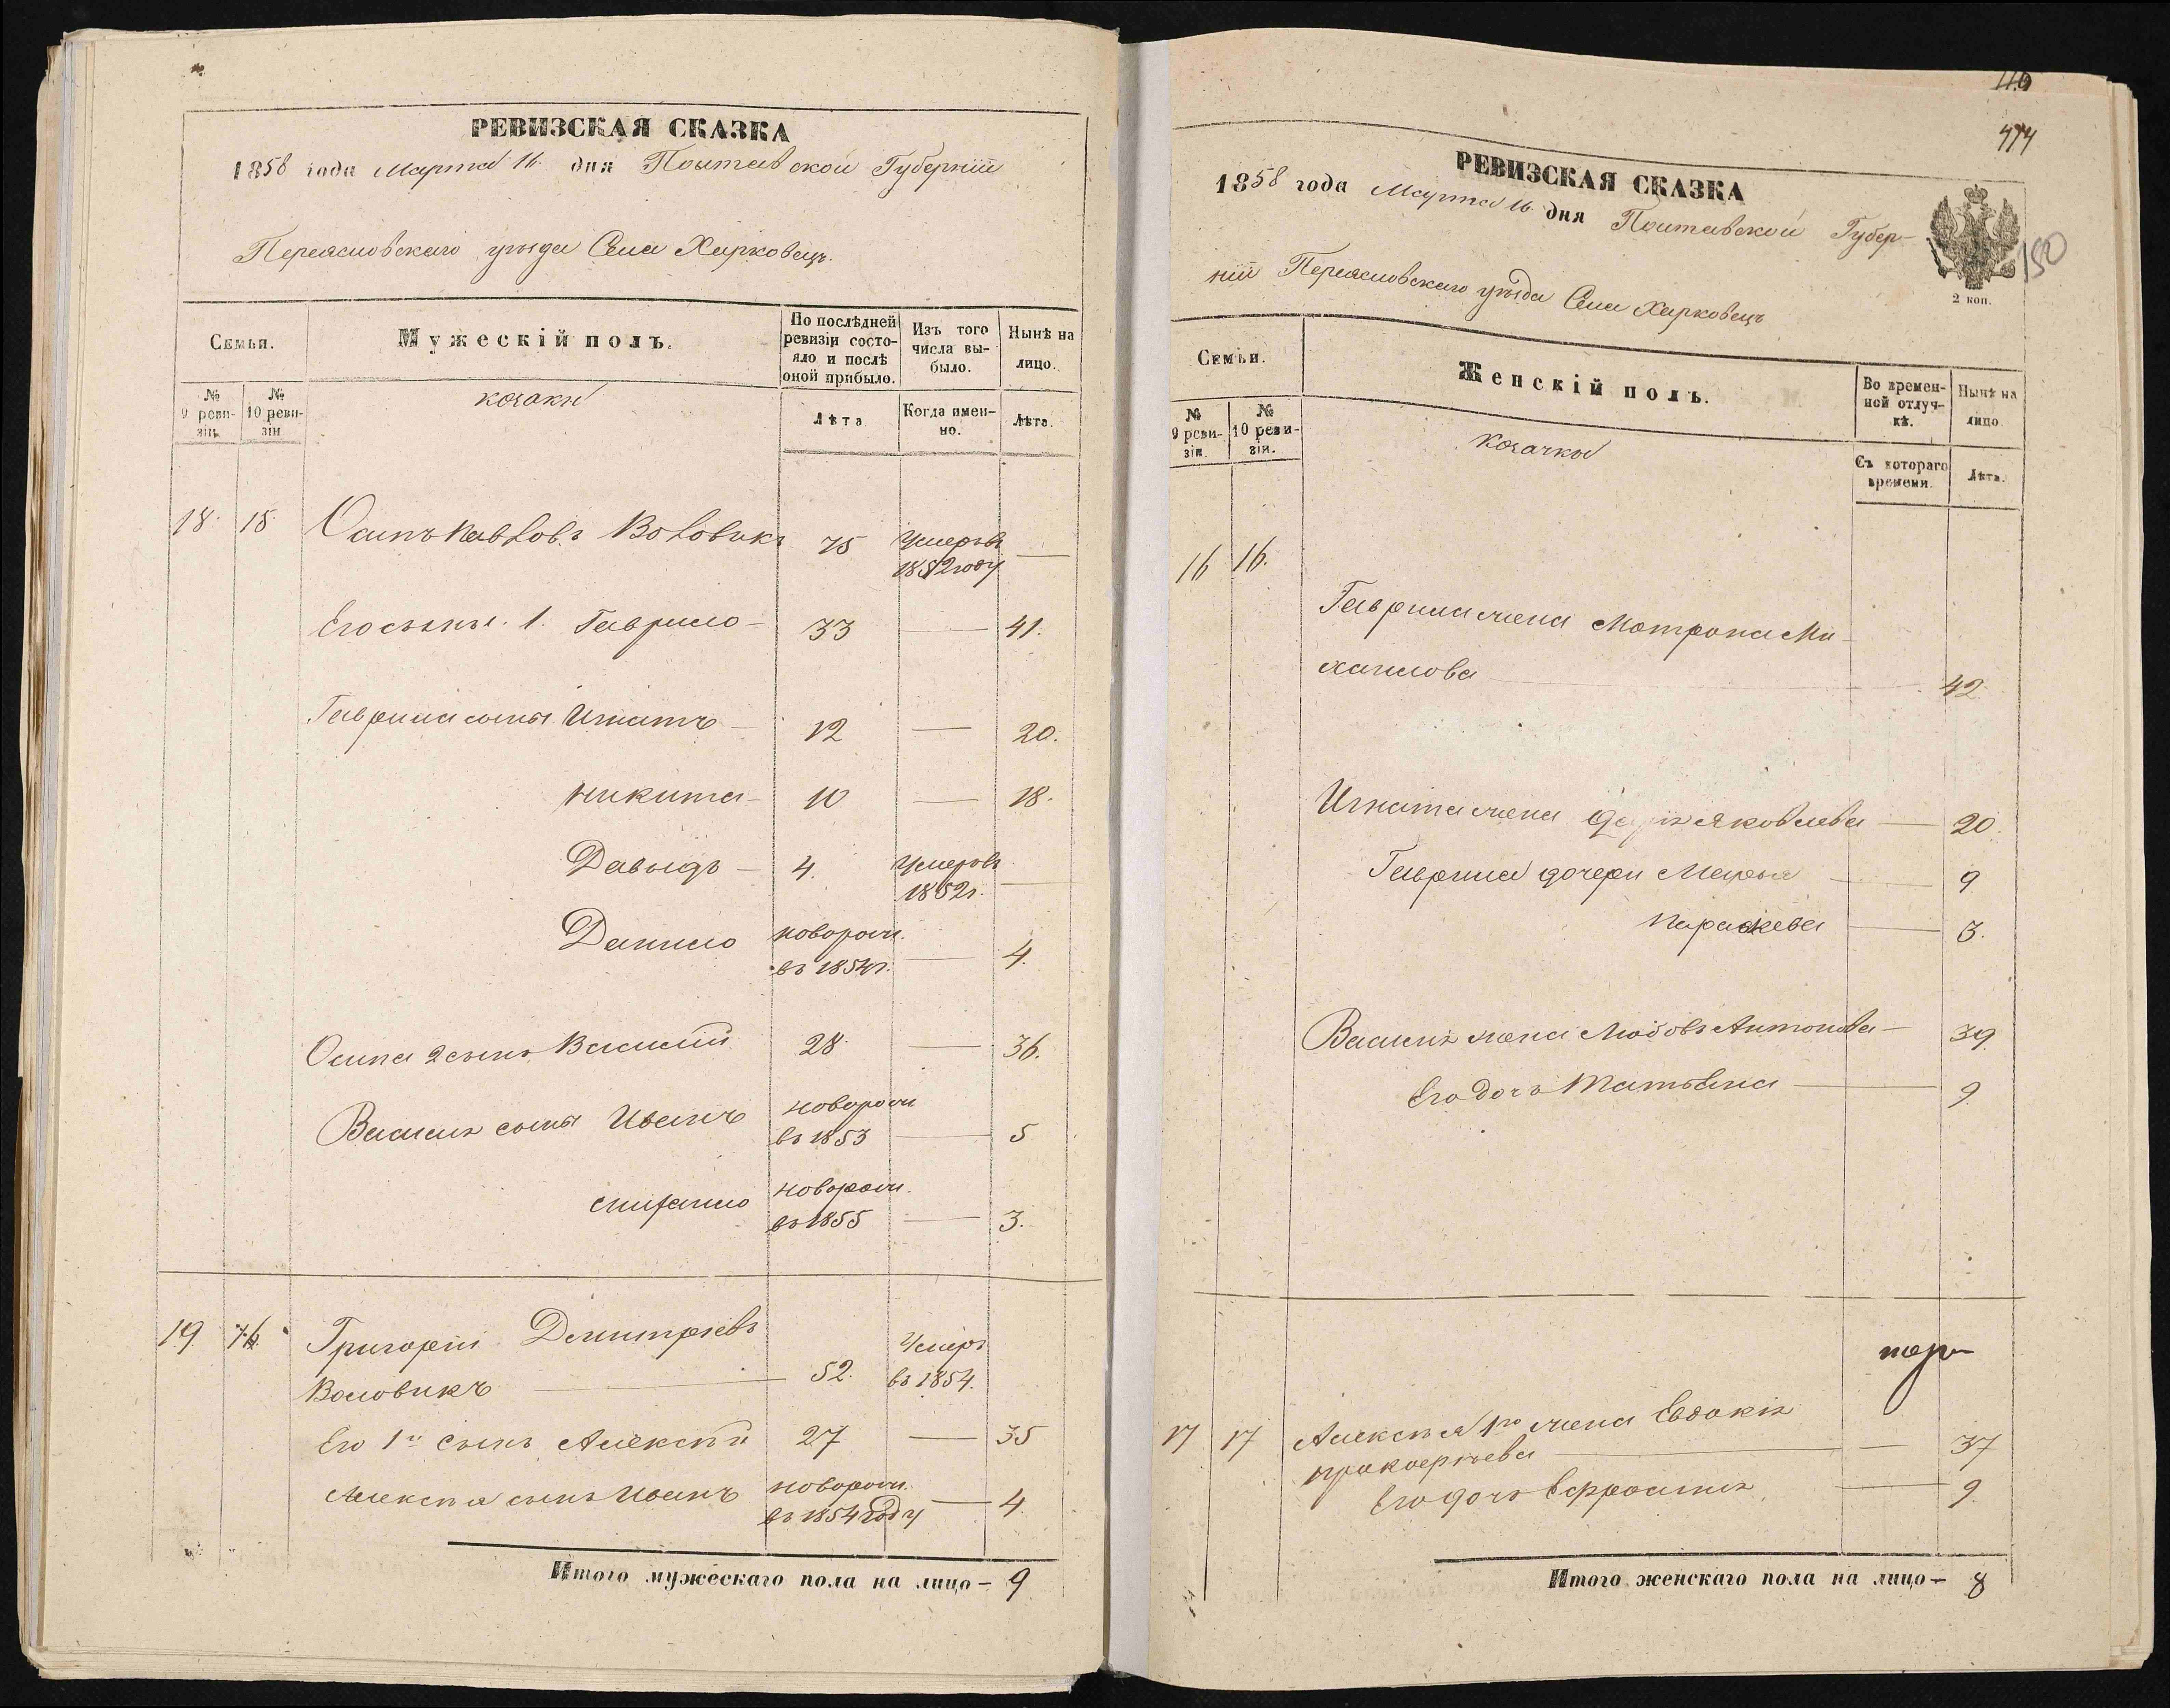 РЕВИЗСКАЯ СКАЗКА
1858 года Марта 16 дня Полтавской Губерніи
Переясловскаго уѣзда Села Харковецъ.
Семьи.
Мужескій полъ.
По послѣдней ревизіи состояло и послѣ оной прибыло.
Изъ того числа выбыло.
Нынѣ на лицо.
№ 9 ревизіи.
№ 10 ревизіи
козаки
Лѣта
Когда именно.
Лѣта.
18. 15 Осипъ Павловъ Воловикъ 75 Умеръ въ 1852 году —
Его сыны. 1. Гаврило — 33 — 41.
Гаврила сыны Игнатъ — 12 — 20.
Никита — 10 — 18.
Давыдъ — 4. Умеръ въ 1852 г. —
Данило новорож. въ 1854 г. — 4.
Осипа 2 сынъ Василій 28 — 36.
Василія сыны Иванъ новорож въ 1853 — 5
Спифанло новорож. въ 1855 — 3.
19. 16. Григорій Дмитріевъ
Воловикъ — 52. Умеръ въ 1854.
Его 1й сынъ Алексѣй 27 — 35
Алексѣя сынъ Иванъ новорож. въ 1854 году — 4.
Итого мужескаго пола на лицо — 9
116
474
РЕВИЗСКАЯ СКАЗКА
1858 года Марта 16 дня Полтавской Губер-
ніи Переясловскаго уѣзда Села Харковецъ
2 коп.
150
Семьи.
Женскій полъ.
Во временной отлучкѣ.
Нынѣ на лицо.
№ 9 ревизіи.
№ 10 ревизіи.
козачки
Съ котораго времени.
Лѣта.
16 16.
Гаврила жена Мотрона Ми-
хайлова — 42
Игната жена Дарія Яковлева — 20.
Гаврила дочери Марья — 9
Параскева — 3.
Василія жена Любовь Антонова — 39
Его дочь Татьяна — 9
17 17 Алексѣя 1го жена Евдокія
Прокофьева — 37
Его дочь Ефросинія — 9.
Итого женскаго пола на лицо — 8